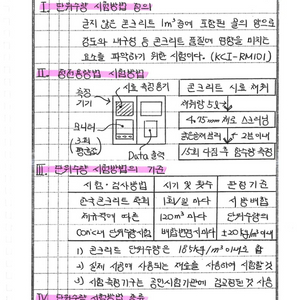 I. 단위수량 시험방법 정의
굳지 않은 콘크리트 1m³중에 포함된 물의 양으로
강도와 내구성 등 콘크리트 품질에 영향을 미치는
요소를 파악하기 위한 시험이다. (KCI-RM101)
II. 시험방법
측정기기
시료 측정용기
모니터
Data 출력
콘크리트 시료 채취
4.75mm 체로
15회 다짐 후 함수량 측정
III. 단위수량 시험방법의 기준
시험·검사방법 시기 및 횟수 판정기준
한국콘크리트 학회 1회/일 마다 시방배합
제규격에 따른 120m³ 마다 단위수량의
Con'c의 단위수량시험 배합변경시마다 ±20kg/m³ 이내
1) 콘크리트 단위수량은 185kg/m³ 이하로 함
2) 실제 시공에 사용되는 재료를 사용하여 시험할것
3) 시험 측정기구는 공인시험기관에 검교정된 것 사용
IV. 단위수량 시험방법 종류